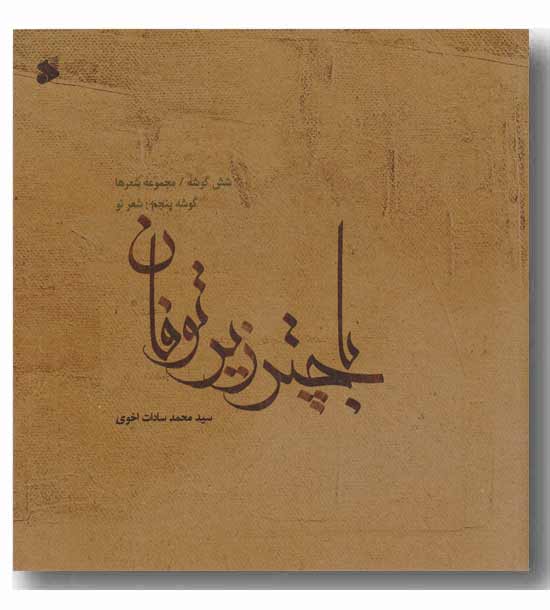 شش گوشه / مجموعه شعرها
گوشه پنجم: شعر نو
با چتر زیر توفان
سید محمد سادات اخوی